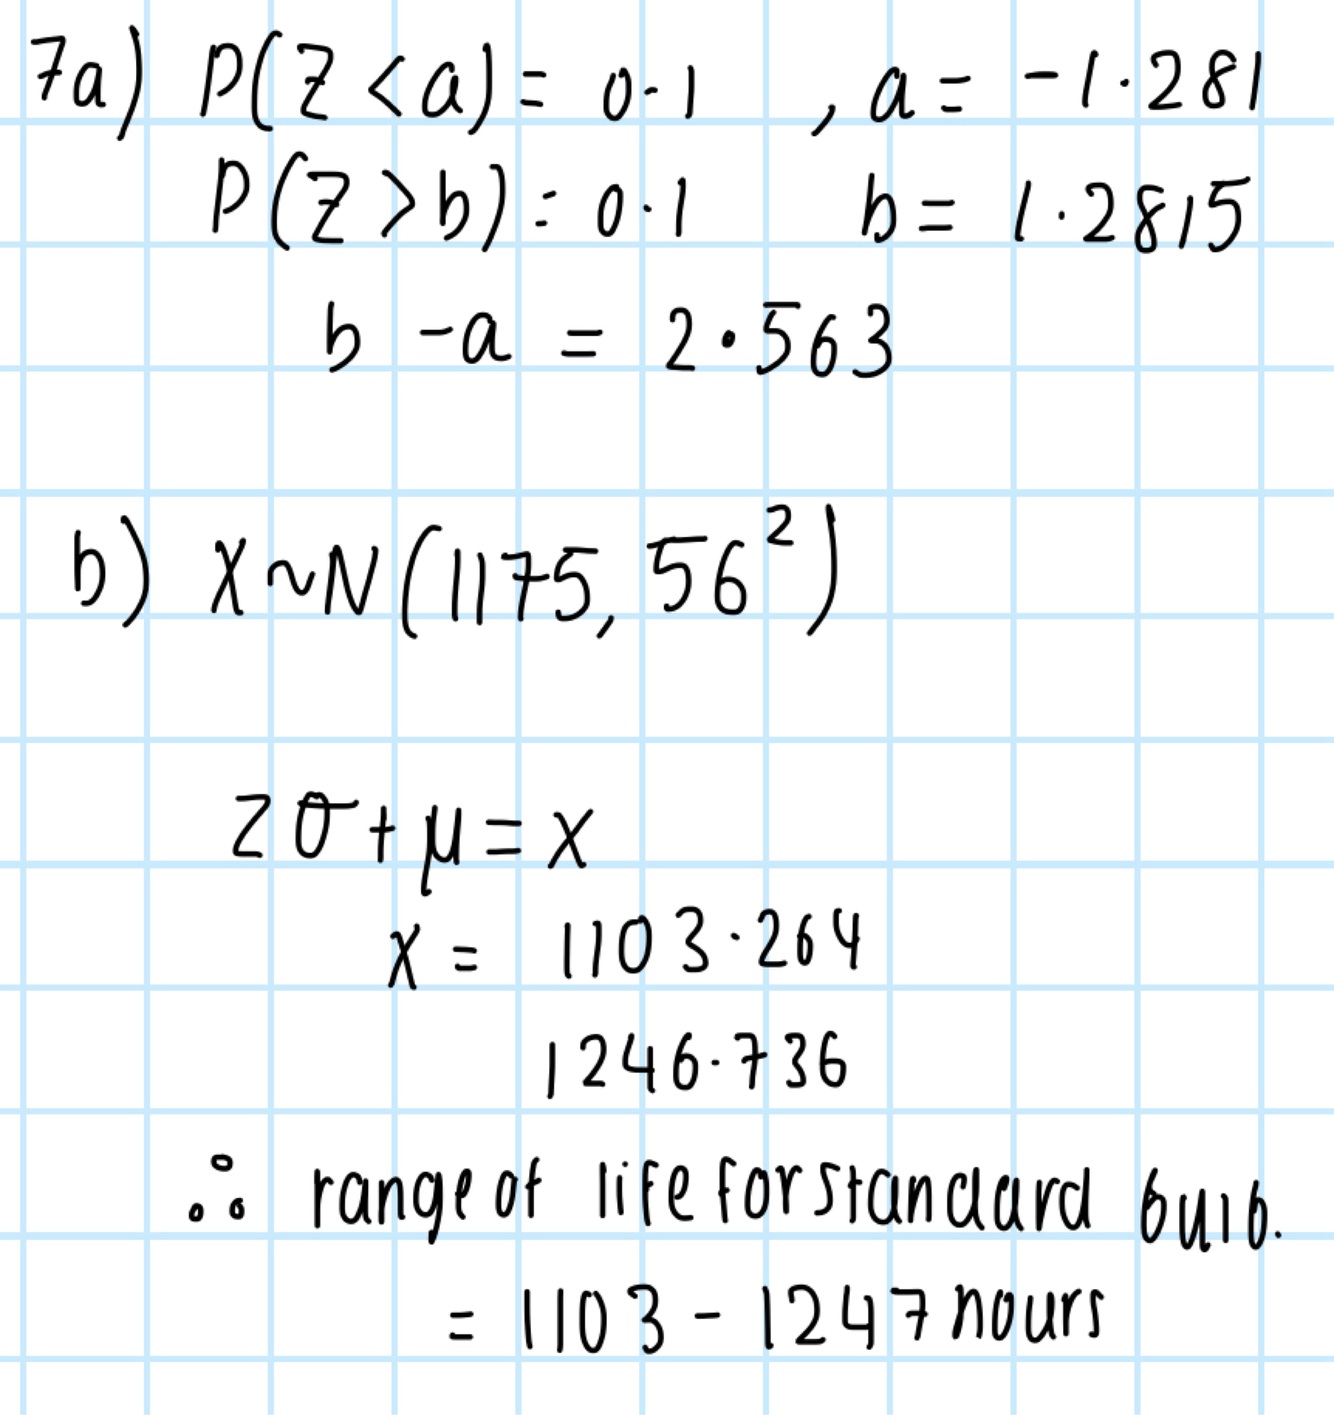 7a) P(Z < a) = 0.1 , a = -1.281
P(Z > b) = 0.1 b = 1.2815
b - a = 2.563
b) X ~ N(1175, 56²)
zσ + μ = x
x = 1103.264
1246.736
∴ range of life for standard bulb.
= 1103 - 1247 hours